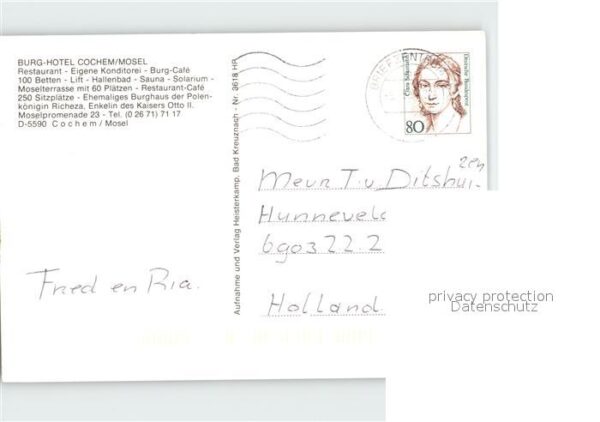 BURG-HOTEL COCHEM/MOSEL
Restaurant - Eigene Konditorei - Burg-Café
100 Betten - Lift - Hallenbad - Sauna - Solarium -
Moselterrasse mit 60 Plätzen - Restaurant-Café
250 Sitzplätze - Ehemaliges Burghaus der Polen-
königin Richeza, Enkelin des Kaisers Otto II.
Moselpromenade 23 - Tel. (0 26 71) 71 17
D-5590 Cochem / Mosel
Aufnahme und Verlag Heisterkamp, Bad Kreuznach · Nr. 3618 HR
BRIEFZENTR
Clara Schumann
Deutsche Bundespost
80
Meur T. v Ditshui-
zen
Hunneveld
Holland
Fred en Ria.
privacy protection
Datenschutz